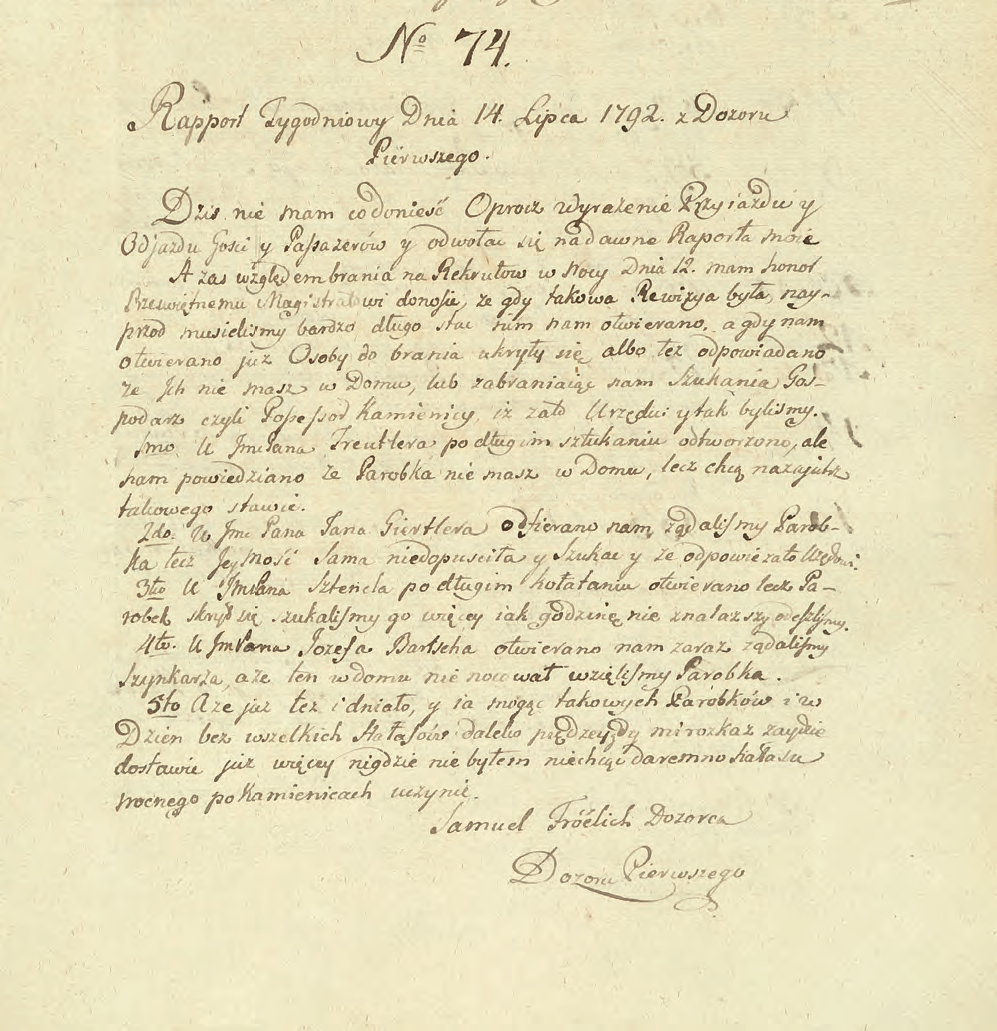 No 74.
Rapport Tygodniowy Dnia 14. Lipca 1792. z Dozoru
Pierwszego.
Dzis nie mam co doniesć Oprocz Wyrażenie Przyiazdu y
Odjazdu Gosci y Passazerów y odwołac się na dawne Raporta moie
A zas względem brania na Rekrutow w Nocy Dnia 12. mam honor
Przeswiętnemu Magistratowi donosic, że gdy takowa Rewizya była, nay-
przod musielismy bardzo długo stac nim nam otwierano, a gdy nam
otwierano juz Osoby do brania ukryły się albo też odpowiadano
że Ich nie masz w Domu, lub zabraniaiąc nam Szukania Gos-
podarz czyli Possessor Kamienicy, iz zato Urzędu: y tak bylismy.
1mo. U JmcPana Treutlera po długim sztukaniu odtworzono, ale
nam powiedziano że Parobka nie masz w Domu, lecz chcą nazajutrz
takowego stawic.
2do. U Jmc Pana Jana Giertlera otfierano nam, rządalismy Parob-
ka lecz Jejmość Sama niedopusciła y Szukac y że odpowie zato Urzędowi.
3tio U JmcPana Sztencla po długim kołataniu otwierano lecz Pa-
robek skrył się szukalismy go więcy iak godzinę nie znalazszy odeszlismy.
4to. U JmPana Jozefa Bartscha otwierano nam zaraz rządalismy
Szynkarza, a że ten w domu nie nocował wzięlismy Parobka.
5to A że już też i dniało, y ia mogąc takowych Parobków i w
Dzien bez wszelkich Hałasów daleko prędzey gdy mi rozkaz zaydzie
dostawic już więcey nigdzie nie byłem niechcąc daremno hałasu
nocnego po Kamienicach uczynic.
Samuel Fröelich Dozorca
Dozoru Pierwszego